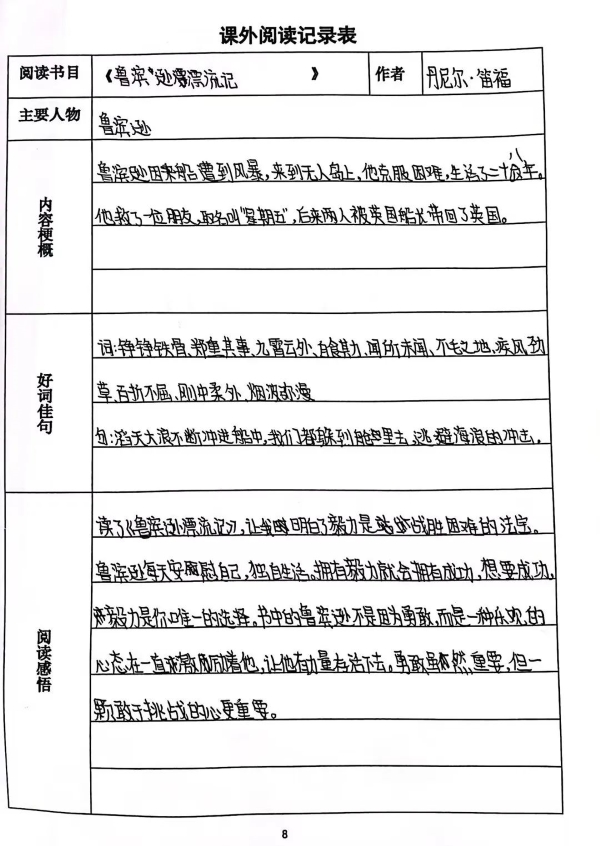 课外阅读记录表
阅读书目 《鲁滨逊漂流记 》 作者 丹尼尔·笛福
主要人物 鲁滨逊
内容梗概
鲁滨逊因乘船遭到风暴,来到无人岛上,他克服困难,生活了二十八年。
他救了一位朋友,取名叫"星期五",后来两人被英国船长带回了英国。
好词佳句
词:铮铮铁骨、郑重其事、九霄云外、自食其力、闻所未闻、不毛之地、疾风劲
草、百折不屈、刚中柔外、烟波弥漫
句:滔天大浪不断冲进船中,我们都躲到舱里去,逃避海浪的冲击。
阅读感悟
读了《鲁滨逊漂流记》,让我明白了毅力是战胜困难的法宝。
鲁滨逊每天安慰自己,独自生活。拥有毅力就会拥有成功,想要成功,
毅力是你唯一的选择。书中的鲁滨逊不是因为勇敢,而是一种乐观的
心态在一直激励着他,让他有力量存活下去。勇敢虽然重要,但一
颗敢于挑战的心更重要。
8